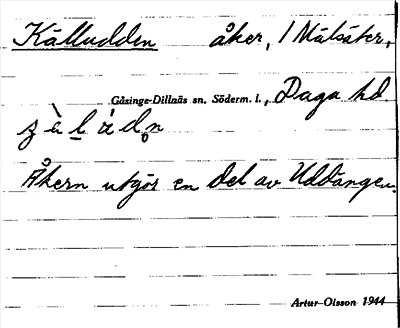 Källudden åker, 1 Mälsäter,
Gåsinge-Dillnäs sn. Söderm. l., Daga hd
Åkern utgör en del av Uddängen.
Artur Olsson 1944